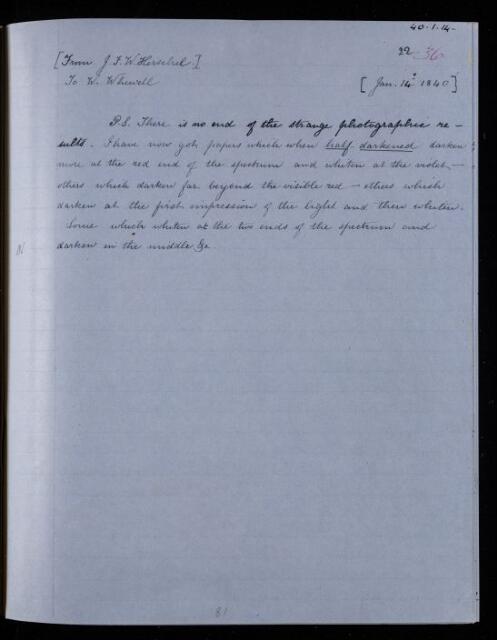 40.1.14.
22 36
[From J. F. W Herschel.]
To W. Whewell
[Jan. 14? 1840]
P.S. There is no end of the strange photographic re-
sults. I have now got papers which when half darkened darken
more at the red end of the spectrum and whiten at the violet—
others which darken far beyond the visible red — others which
darken at the first impression of the light and then whiten.
Some which whiten at the two ends of the spectrum and
darken in the middle &c
N
81